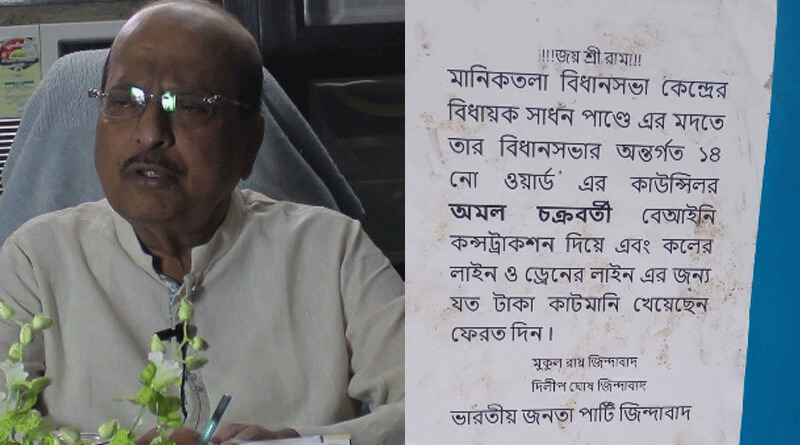 !!!জয় শ্রী রাম!!!
মানিকতলা বিধানসভা কেন্দ্রের
বিধায়ক সাধন পাণ্ডে এর মদতে
তার বিধানসভার অন্তর্গত ১৪
নো ওয়ার্ড এর কাউন্সিলর
অমল চক্রবর্তী বেআইনি
কন্সট্রাকশন দিয়ে এবং কলের
লাইন ও ড্রেনের লাইন এর জন্য
যত টাকা কাটমানি খেয়েছেন
ফেরত দিন।
মুকুল রায় জিন্দাবাদ
দিলীপ ঘোষ জিন্দাবাদ
ভারতীয় জনতা পার্টি জিন্দাবাদ